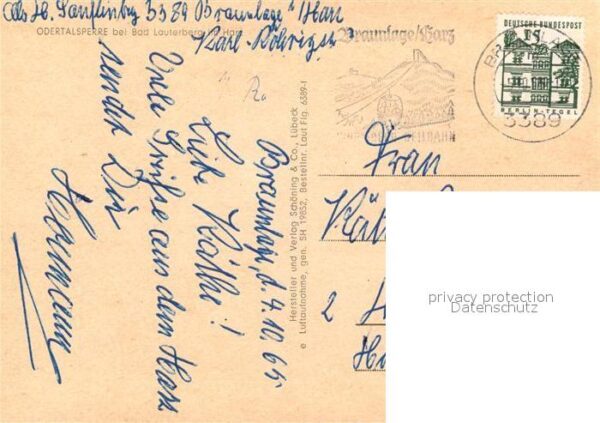 3389 Braunlage Harz
ODERTALSPERRE bei Bad Lauterberg im Harz
Karl-Röhrig
Braunlage/Harz
SEILBAHN
DEUTSCHE BUNDESPOST
BERLIN-TEGEL
3389
Braunlage, d. 4.10.65
Liebe Käthe!
Viele Grüße aus dem Harz
sendet Dir
Hermann
Hersteller und Verlag Schöning & Co., Lübeck
Luftaufnahme, gen. SH 19852, Bestellnr. Laut Flg. 6389-1
Frau
2
privacy protection
Datenschutz